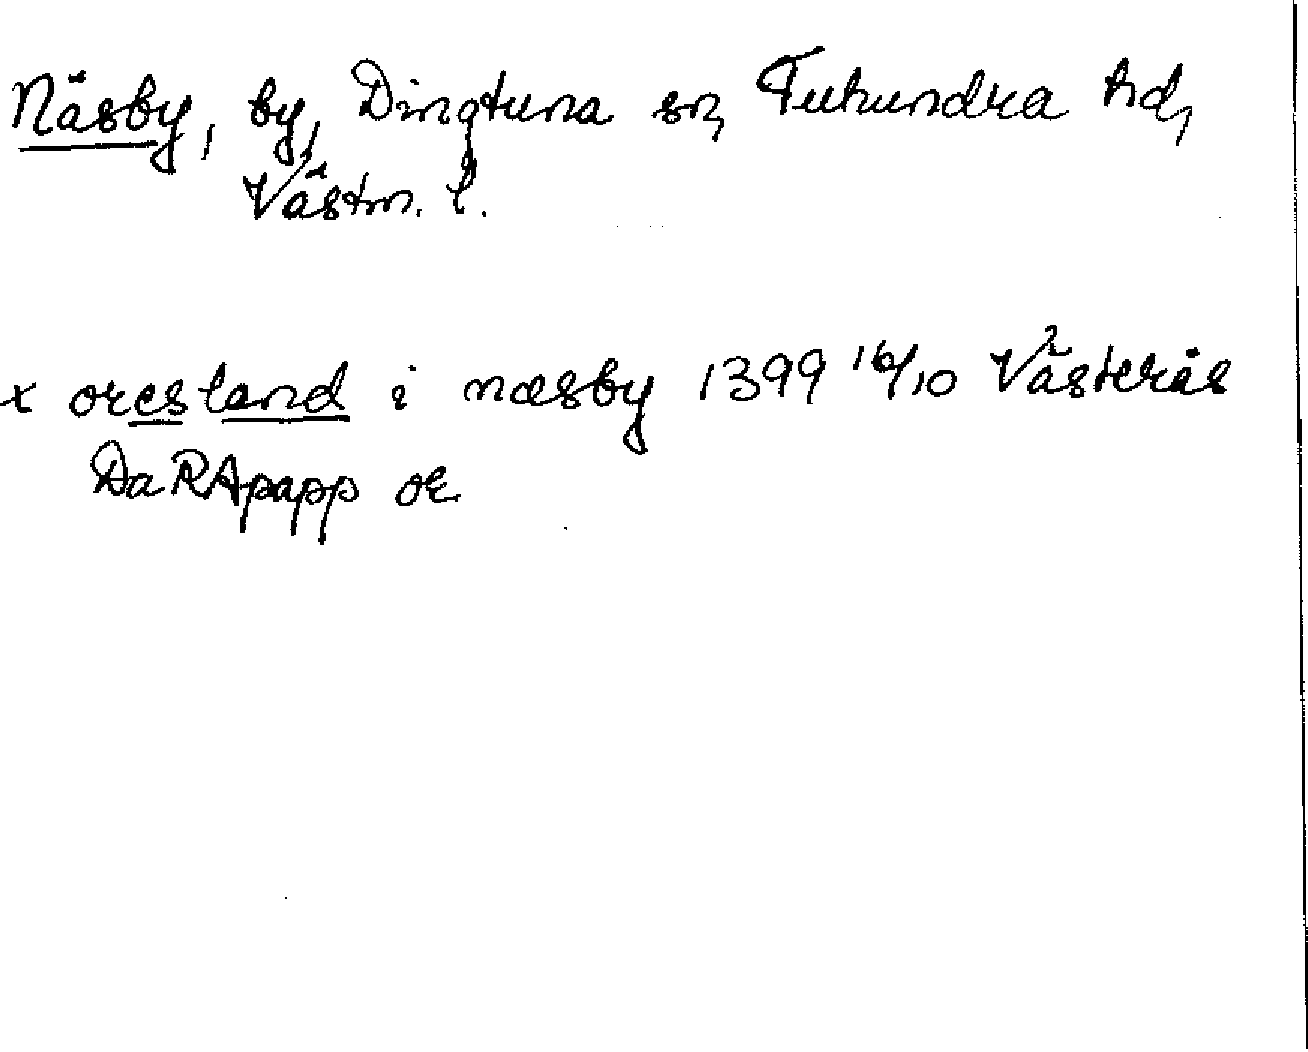 Näsby, by, Dingtuna sn, Tuhundra hd,
Västm. l.
x oresland i næsby 1399 16/10 Västerås
DaRApapp or